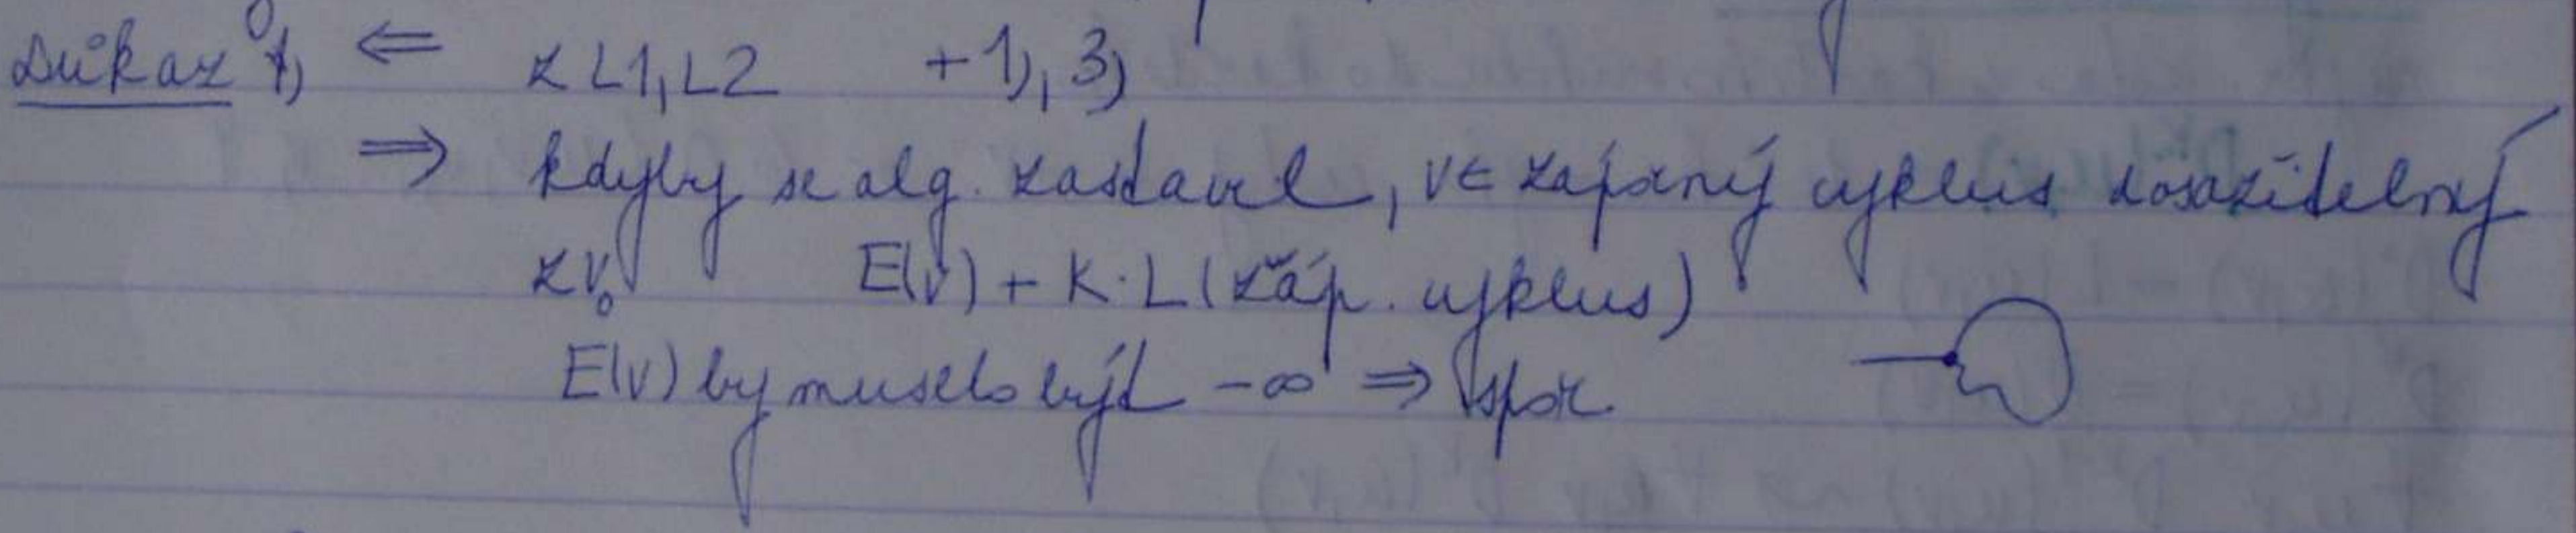 Důkaz 1) ⇐ z L1, L2 + 1), 3)
⇒ kdyby se alg. zastavil, v∈ záporný cyklus dosažitelný
z v₀ E(v) + K·L(záp. cyklus)
E(v) by muselo být -∞ ⇒ spor.